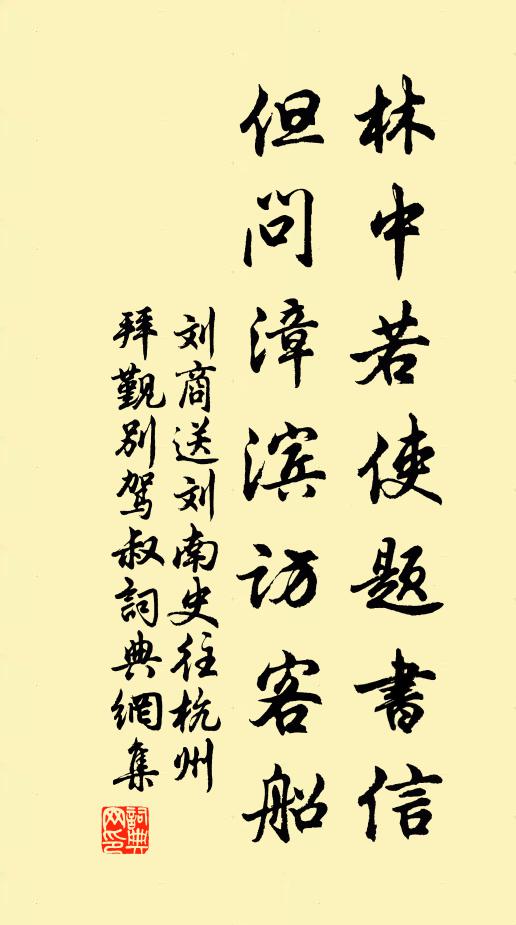 林中若使题書信
但问漳滨访客船
刘商送刘南史往杭州
拜觐别驾叔詞典網集
詞典
网印